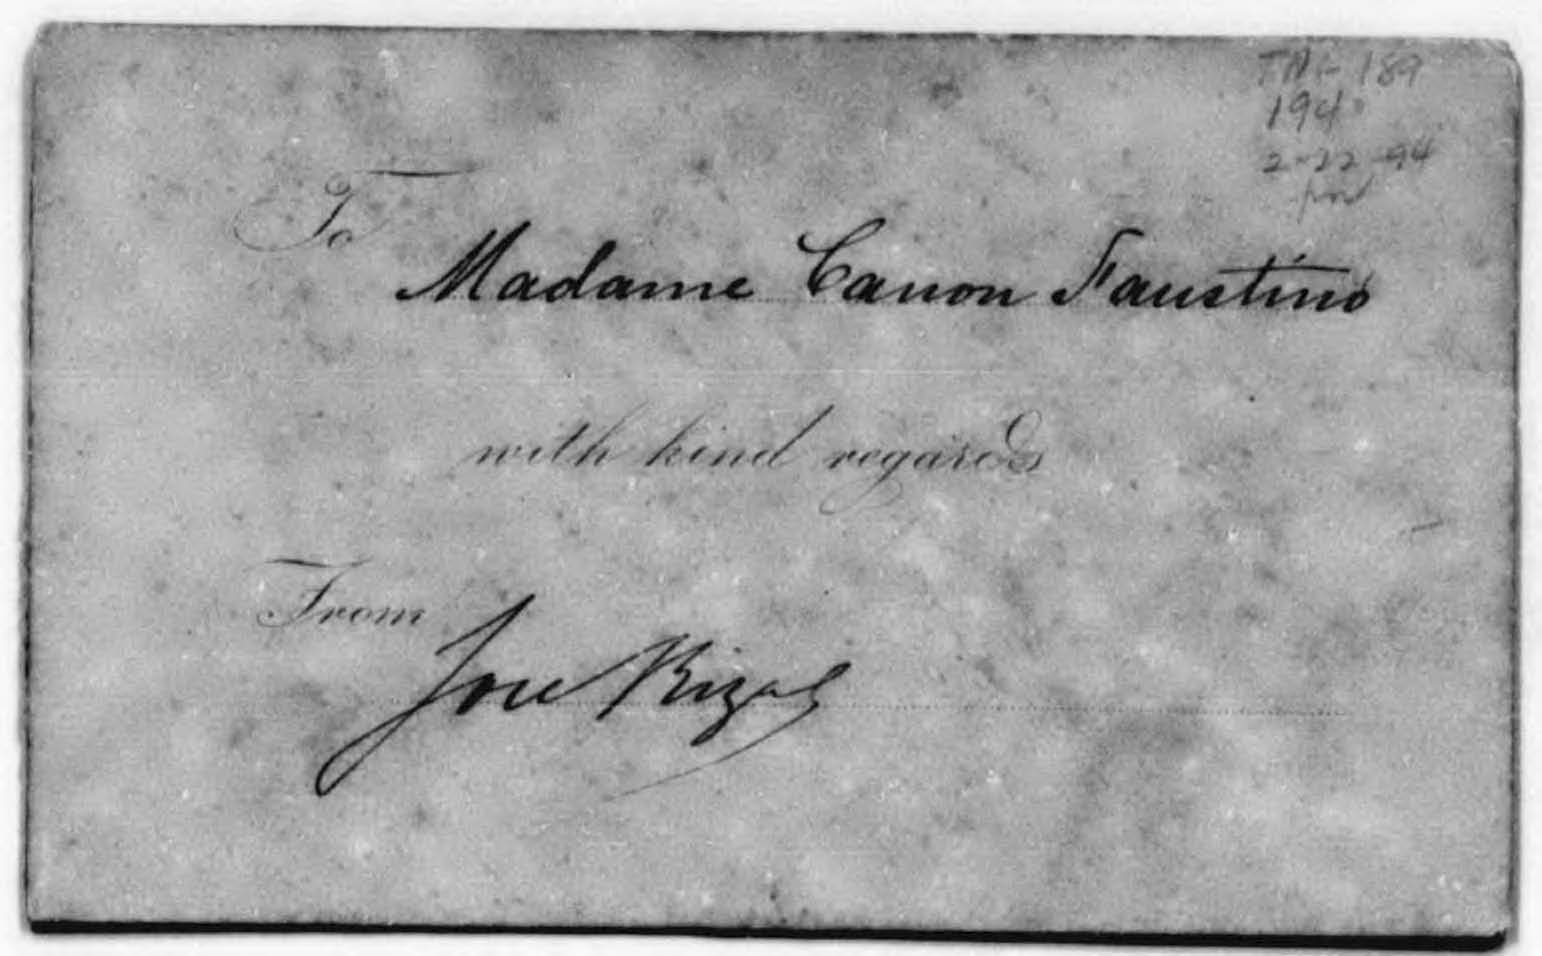 189
194
2-22-94
To
Madame Canon Faustino
with kind regards
From
Jose Rizal